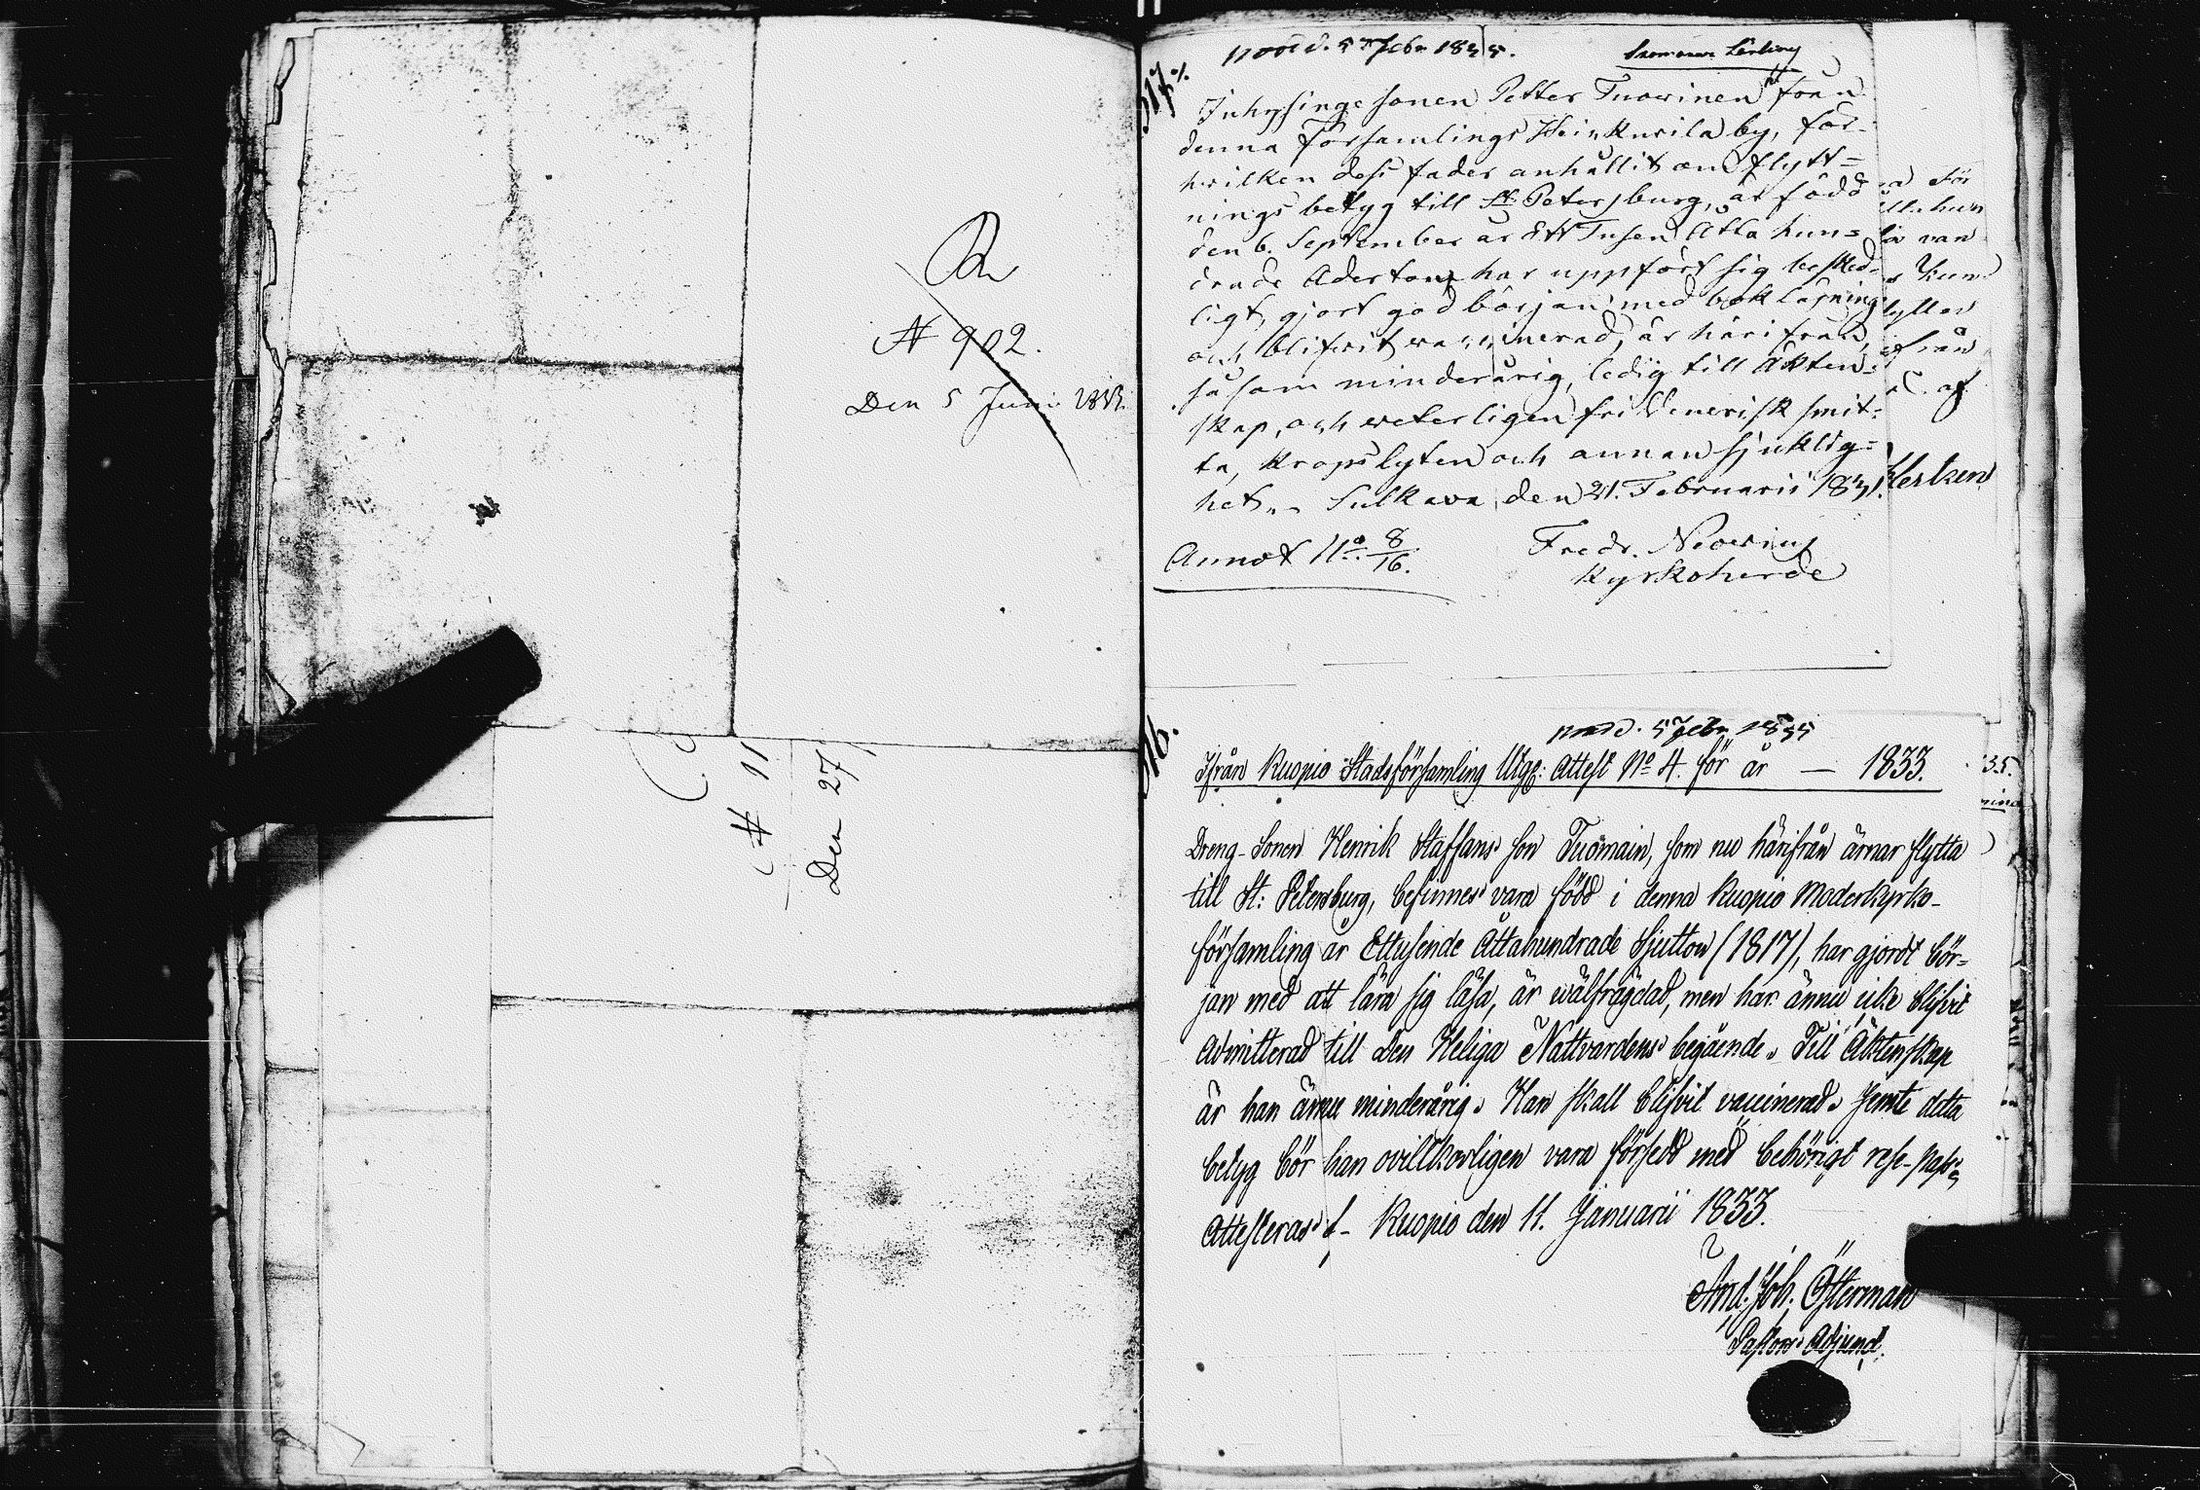 N 902.
Den 5 Juni
# 11
Den 27
517.
5 Febr 1835.
Inhysinge sonen Petter Tuovinen från
denna Församlings Heinkurila by, för
hvilken dess fader anhållit om flytt=
nings betyg till St Petersburg, är född
den 6. September år Ett Tusen Åtta hun=
drade Aderton, har uppfört sig besked=
ligt, gjort god början med bok läsning
och blifvit vaccinerad, är härifrån,
såsom minderårig, ledig till Äkten=
skap, och veterligen fri Venerisk smit=
ta, Kropslyten och annan sjuklig=
het. Sulkava, den 21. Februarii
Annot No. 8/16.
Fredr. Neovius
Kyrkoherde
516.
5 Febr 1835
Ifrån Kuopio Stadsförsamling Utgif: Attest No 4. för år — 1833.
Dreng-Sonen Henrik Staffans son Tuomain, som nu härifrån ärnar flytta
till St: Petersburg, befinnes vara född i denna Kuopio Moderkyrko-
församling år Ettusende Åttahundrade Sjutton (1817), har gjordt bör=
jan med att lära sig läsa, är wälfrägdad, men har ännu icke blifvit
admitterad till Den Heliga Nattvardens begående. Till Äktenskap
är han ännu minderårig. Han skall blifvit vaccinerad. Jemte detta
betyg bör han ovillkorligen vara försedd med behörigt rese-pass.
Attesteras f- Kuopio den 11. Januarii 1833.
And. Joh. Österman
Pastors Adjunct.